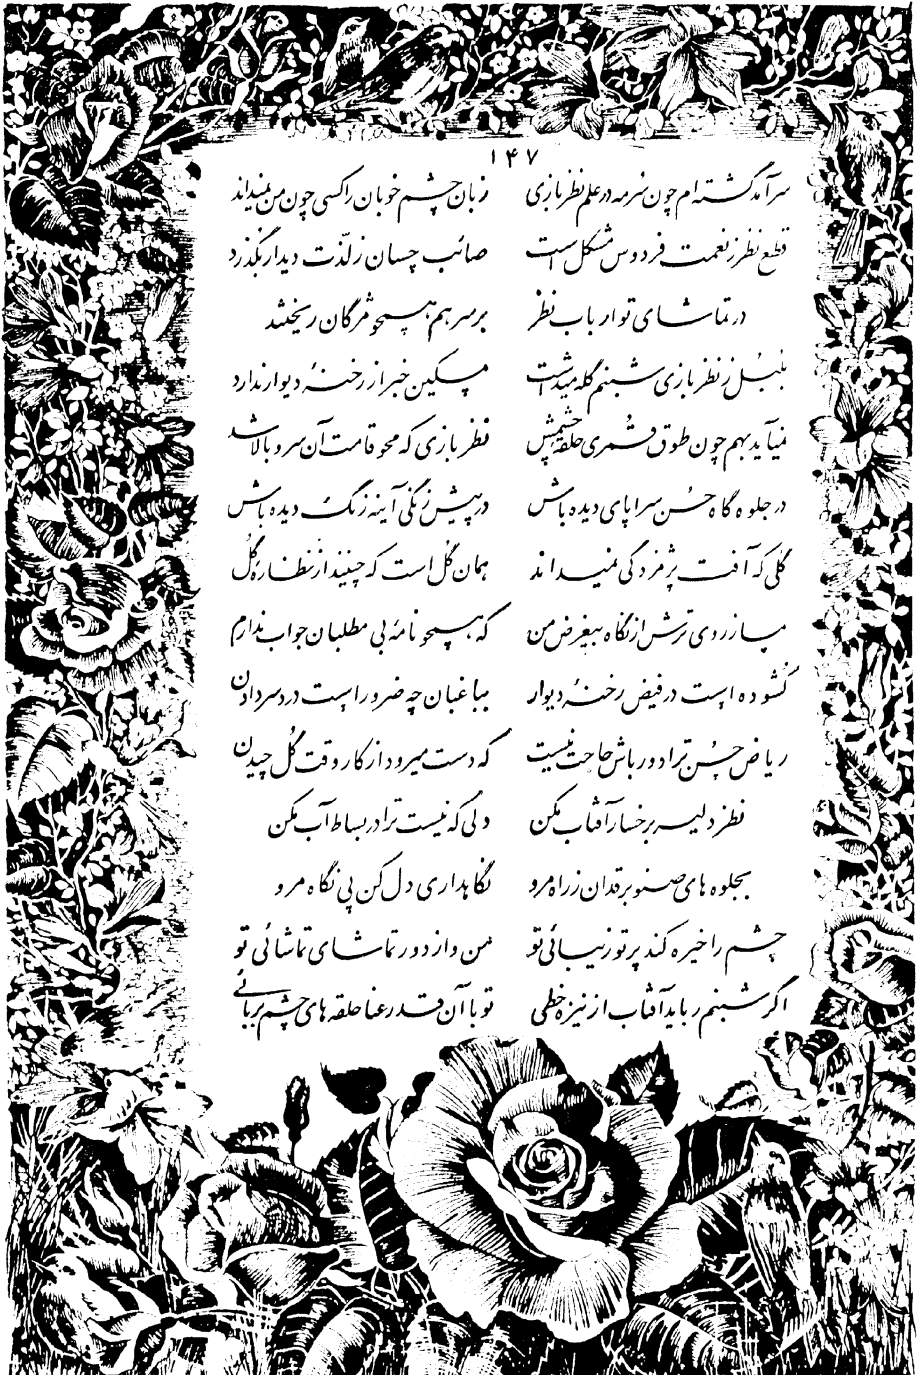 ۱۴۷
سرآمد گشته‌ام چون سرمه در علم نظربازی زبان چشم خوبان را کسی چون من نمیداند
قطع نظر ز نعمت فردوس مشکل است صائب چسان ز لذّت دیدار بگذرد
در تماشای تو ارباب نظر بر سر هم همچو مژگان ریختند
بلبل ز نظربازی شبنم گله میداشت مسکین خبر از رخنهٔ دیوار ندارد
نمیآید بهم چون طوق قمری حلقه چشمش نظربازی که محو قامت آن سرو بالا شد
در جلوه گاه حسن سراپای دیده باش در پیش زنگی آینه زنگ دیده باش
گلی که آفت پژمردگی نمیداند همان گل است که چینند از نظاره گل
مساز روی ترش از نگاه بیغرض من که همچو نامهٔ بی مطلبان جواب ندارم
گشوده است در فیض رخنهٔ دیوار بباغبان چه ضرور است دردسر دادن
ریاض حسن ترا دورباش حاجت نیست که دست میرود از کار وقت گل چیدن
نظر دلیر برخسار آفتاب مکن دلی که نیست ترا در بساط آب مکن
بجلوه های صنوبرقدان ز راه مرو نگاهداری دل کن پی نگاه مرو
چشم را خیره کند پرتو زیبائی تو من و از دور تماشای تماشائی تو
اگر شبنم رباید آفتاب از نیزهٔ خطی تو با آن قد رعنا حلقه های چشم بربائی